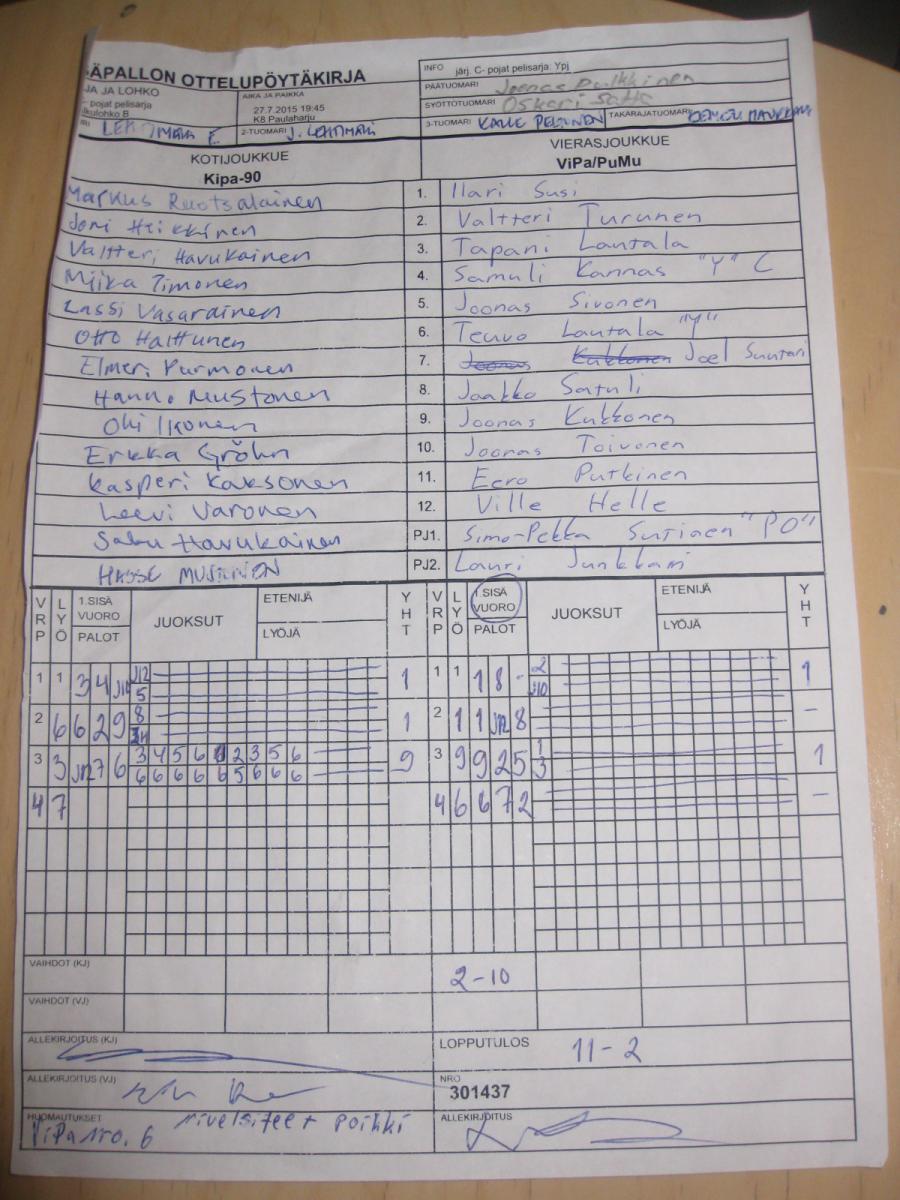 SÄPALLON OTTELUPÖYTÄKIRJA
INFO järj. C- pojat pelisarja: Ypj
JA JA LOHKO
- pojat pelisarja
lkulohko B
AIKA JA PAIKKA
27.7.2015 19:45
K8 Paulaharju
PÄÄTUOMARI Joonas Pulkkinen
SYÖTTÖTUOMARI Oskari
2-TUOMARI J. LEHTIMÄKI
3-TUOMARI KALLE PELTONEN TAKARAJATUOMARI
KOTIJOUKKUE
Kipa-90
VIERASJOUKKUE
ViPa/PuMu
Markus Ruotsalainen 1. Ilari Susi
Joni Heikkinen 2. Valtteri Turunen
Valtteri Havukainen 3. Tapani Lautala
Miika Timonen 4. Samuli Kannas "Y" C
Lassi Vasarainen 5. Joonas Sivonen
Otto Halttunen 6. Teuvo Lautala "Y"
Elmeri Purmonen 7. Joonas Kukkonen Joel Suutari
Hannu Mustonen 8. Jaakko Satuli
Olli Ikonen 9. Joonas Kukkonen
Erkka Gröhn 10. Joonas Toivonen
Kasperi Kaksonen 11. Eero Putkinen
Leevi Varonen 12. Ville Helle
Saku Havukainen PJ1. Simo-Pekka "PO"
HASSE MUSTONEN PJ2. Lauri Junkkari
VRP LYÖ 1.SISÄ VUORO PALOT JUOKSUT ETENIJÄ LYÖJÄ YHT VRP LYÖ 1.SISÄ VUORO PALOT JUOKSUT ETENIJÄ LYÖJÄ YHT
J12 2
1 1 3 4 J10 5 1 1 1 1 8 - J10 1
8
2 6 6 2 9 1 2 1 1 J12 8 -
3 4 5 6 1 2 3 5 6 1
3 3 J12 7 6 6 6 6 6 6 5 6 6 6 9 3 9 9 2 5 3 1
4 7 4 6 6 7 2 -
VAIHDOT (KJ) 2-10
VAIHDOT (VJ)
ALLEKIRJOITUS (KJ)
LOPPUTULOS 11-2
ALLEKIRJOITUS (VJ)
NRO
301437
HUOMAUTUKSET poikki
ViPa nro. 6
ALLEKIRJOITUS